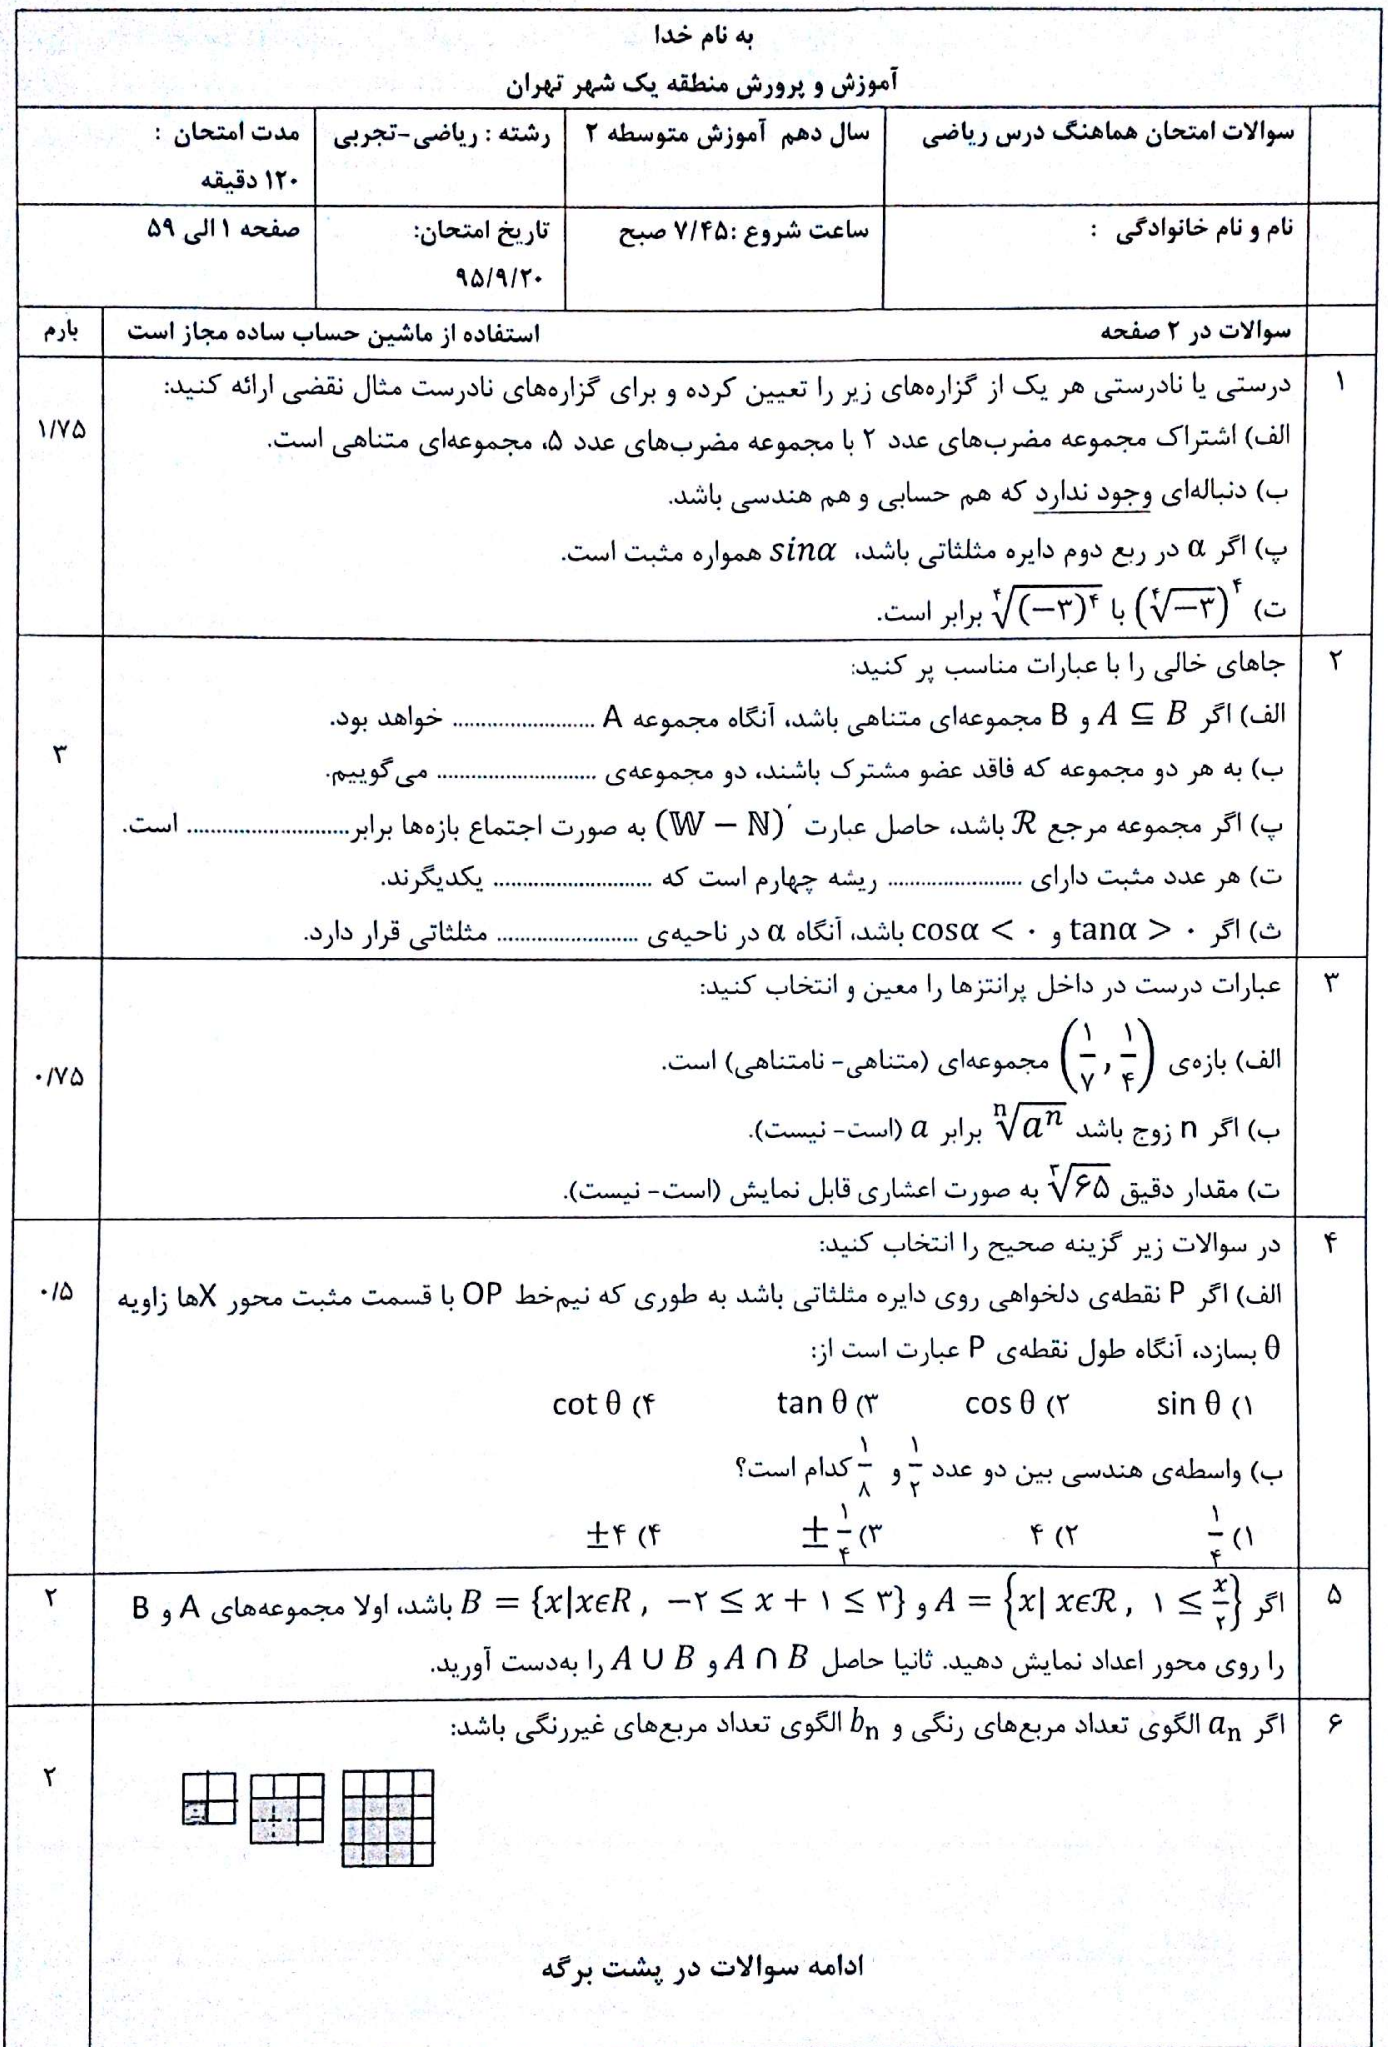 به نام خدا
آموزش و پرورش منطقه یک شهر تهران
سوالات امتحان هماهنگ درس ریاضی
سال دهم آموزش متوسطه ۲
رشته : ریاضی-تجربی
مدت امتحان :
۱۲۰ دقیقه
نام و نام خانوادگی :
ساعت شروع :۷/۴۵ صبح
تاریخ امتحان:
۹۵/۹/۲۰
صفحه ۱ الی ۵۹
سوالات در ۲ صفحه
استفاده از ماشین حساب ساده مجاز است
بارم
۱
درستی یا نادرستی هر یک از گزاره‌های زیر را تعیین کرده و برای گزاره‌های نادرست مثال نقضی ارائه کنید:
۱/۷۵
الف) اشتراک مجموعه مضرب‌های عدد ۲ با مجموعه مضرب‌های عدد ۵، مجموعه‌ای متناهی است.
ب) دنباله‌ای وجود ندارد که هم حسابی و هم هندسی باشد.
پ) اگر α در ربع دوم دایره مثلثاتی باشد، sinα همواره مثبت است.
ت) (∜(−۳))^۴ با ∜((−۳)^۴) برابر است.
۲
جاهای خالی را با عبارات مناسب پر کنید:
الف) اگر A ⊆ B و B مجموعه‌ای متناهی باشد، آنگاه مجموعه A ......................... خواهد بود.
۳
ب) به هر دو مجموعه که فاقد عضو مشترک باشند، دو مجموعه‌ی ............................ می‌گوییم.
پ) اگر مجموعه مرجع ℛ باشد، حاصل عبارت (𝕎 − ℕ)′ به صورت اجتماع بازه‌ها برابر............................ است.
ت) هر عدد مثبت دارای ........................ ریشه چهارم است که ............................ یکدیگرند.
ث) اگر tanα > ۰ و cosα < ۰ باشد، آنگاه α در ناحیه‌ی ......................... مثلثاتی قرار دارد.
۳
عبارات درست در داخل پرانتزها را معین و انتخاب کنید:
الف) بازه‌ی (۱/۷ , ۱/۴) مجموعه‌ای (متناهی- نامتناهی) است.
۰/۷۵
ب) اگر n زوج باشد ⁿ√aⁿ برابر a (است- نیست).
ت) مقدار دقیق ∛۶۵ به صورت اعشاری قابل نمایش (است- نیست).
۴
در سوالات زیر گزینه صحیح را انتخاب کنید:
۰/۵
الف) اگر P نقطه‌ی دلخواهی روی دایره مثلثاتی باشد به طوری که نیم‌خط OP با قسمت مثبت محور Xها زاویه
θ بسازد، آنگاه طول نقطه‌ی P عبارت است از:
۱) sin θ ۲) cos θ ۳) tan θ ۴) cot θ
ب) واسطه‌ی هندسی بین دو عدد ۱/۲ و ۱/۸ کدام است؟
۱) ۱/۴ ۲) ۴ ۳) ±۱/۴ ۴) ±۴
۵
اگر A = {x| xϵℛ , ۱ ≤ x/۲} و B = {x|xϵR , −۲ ≤ x + ۱ ≤ ۳} باشد، اولا مجموعه‌های A و B
۲
را روی محور اعداد نمایش دهید. ثانیا حاصل A ∩ B و A ∪ B را به‌دست آورید.
۶
اگر aₙ الگوی تعداد مربع‌های رنگی و bₙ الگوی تعداد مربع‌های غیررنگی باشد:
۲
ادامه سوالات در پشت برگه